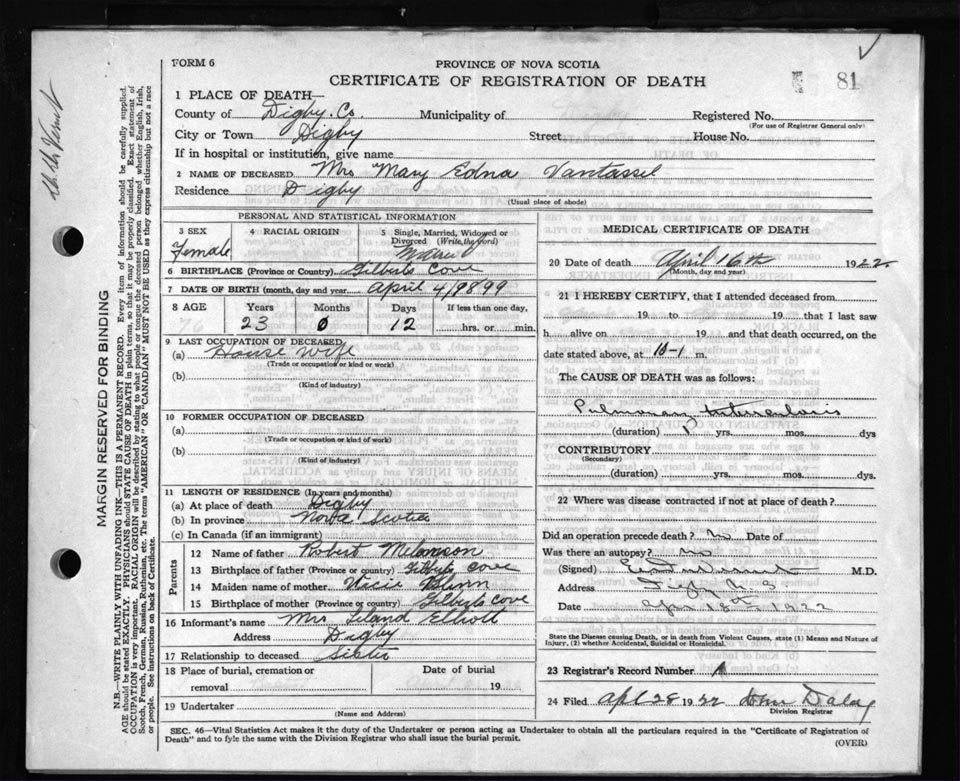 FORM 6
PROVINCE OF NOVA SCOTIA
CERTIFICATE OF REGISTRATION OF DEATH
81
1 PLACE OF DEATH—
County of Digby. Co. Municipality of Registered No.
(For use of Registrar General only)
City or Town Digby Street House No.
If in hospital or institution, give name
2 NAME OF DECEASED Mrs Mary Edna Vantassel
Residence Digby
(Usual place of abode)
PERSONAL AND STATISTICAL INFORMATION
3 SEX
Female
4 RACIAL ORIGIN
5 Single, Married, Widowed or Divorced (Write the word)
6 BIRTHPLACE (Province or Country) Gilberts Cove
7 DATE OF BIRTH (month, day and year) April 4/9899
8 AGE Years Months Days If less than one day,
76 23 0 12 hrs. or min.
9 LAST OCCUPATION OF DECEASED
(a) House wife
(Trade or occupation or kind or work)
(b)
(Kind of industry)
10 FORMER OCCUPATION OF DECEASED
(a)
(Trade or occupation or kind of work)
(b)
(Kind of industry)
11 LENGTH OF RESIDENCE (In years and months)
(a) At place of death Digby
(b) In province Nova Scotia
(c) In Canada (if an immigrant)
Parents
12 Name of father Robert Melanson
13 Birthplace of father (Province or country) Gilberts Cove
14 Maiden name of mother
15 Birthplace of mother (Province or country) Gilberts Cove
16 Informant's name Mrs Leland Elliott
Address Digby
17 Relationship to deceased Sister
18 Place of burial, cremation or removal Date of burial 19
19 Undertaker
(Name and Address)
MEDICAL CERTIFICATE OF DEATH
20 Date of death April 16th 1922
(Month, day and year)
21 I HEREBY CERTIFY, that I attended deceased from
19 to 19 that I last saw
h alive on 19 and that death occurred, on
date stated above, at m.
The CAUSE OF DEATH was as follows:
Pulmonary tuberculosis
(duration) yrs. mos. dys
CONTRIBUTORY
(Secondary)
(duration) yrs. mos. dys.
22 Where was disease contracted if not at place of death?
Did an operation precede death? No Date of
Was there an autopsy? no
(Signed) M.D.
Address Digby N S
Date Apr 18th 1922
State the Disease causing Death, or in death from Violent Causes, state (1) Means and Nature of Injury, (2) whether Accidental, Suicidal or Homicidal.
23 Registrar's Record Number
24 Filed Apl 28 1922 Daley
Division Registrar
SEC. 46—Vital Statistics Act makes it the duty of the Undertaker or person acting as Undertaker to obtain all the particulars required in the "Certificate of Registration of Death" and to fyle the same with the Division Registrar who shall issue the burial permit.
(OVER)
MARGIN RESERVED FOR BINDING
N.B.—WRITE PLAINLY WITH UNFADING INK—THIS IS A PERMANENT RECORD. Every item of information should be carefully supplied.
AGE should be stated EXACTLY. PHYSICIANS should STATE CAUSE OF DEATH in plain terms, so that it may be properly classified. Exact statement of
OCCUPATION is very important. RACIAL ORIGIN will be described by stating to what people or tongue the deceased person belonged whether English, Irish,
Scotch, French, German, Russian, Ruthenian, etc. The terms "AMERICAN" OR "CANADIAN" MUST NOT BE USED as they express citizenship but not a race
or people. See instructions on back of Certificate.